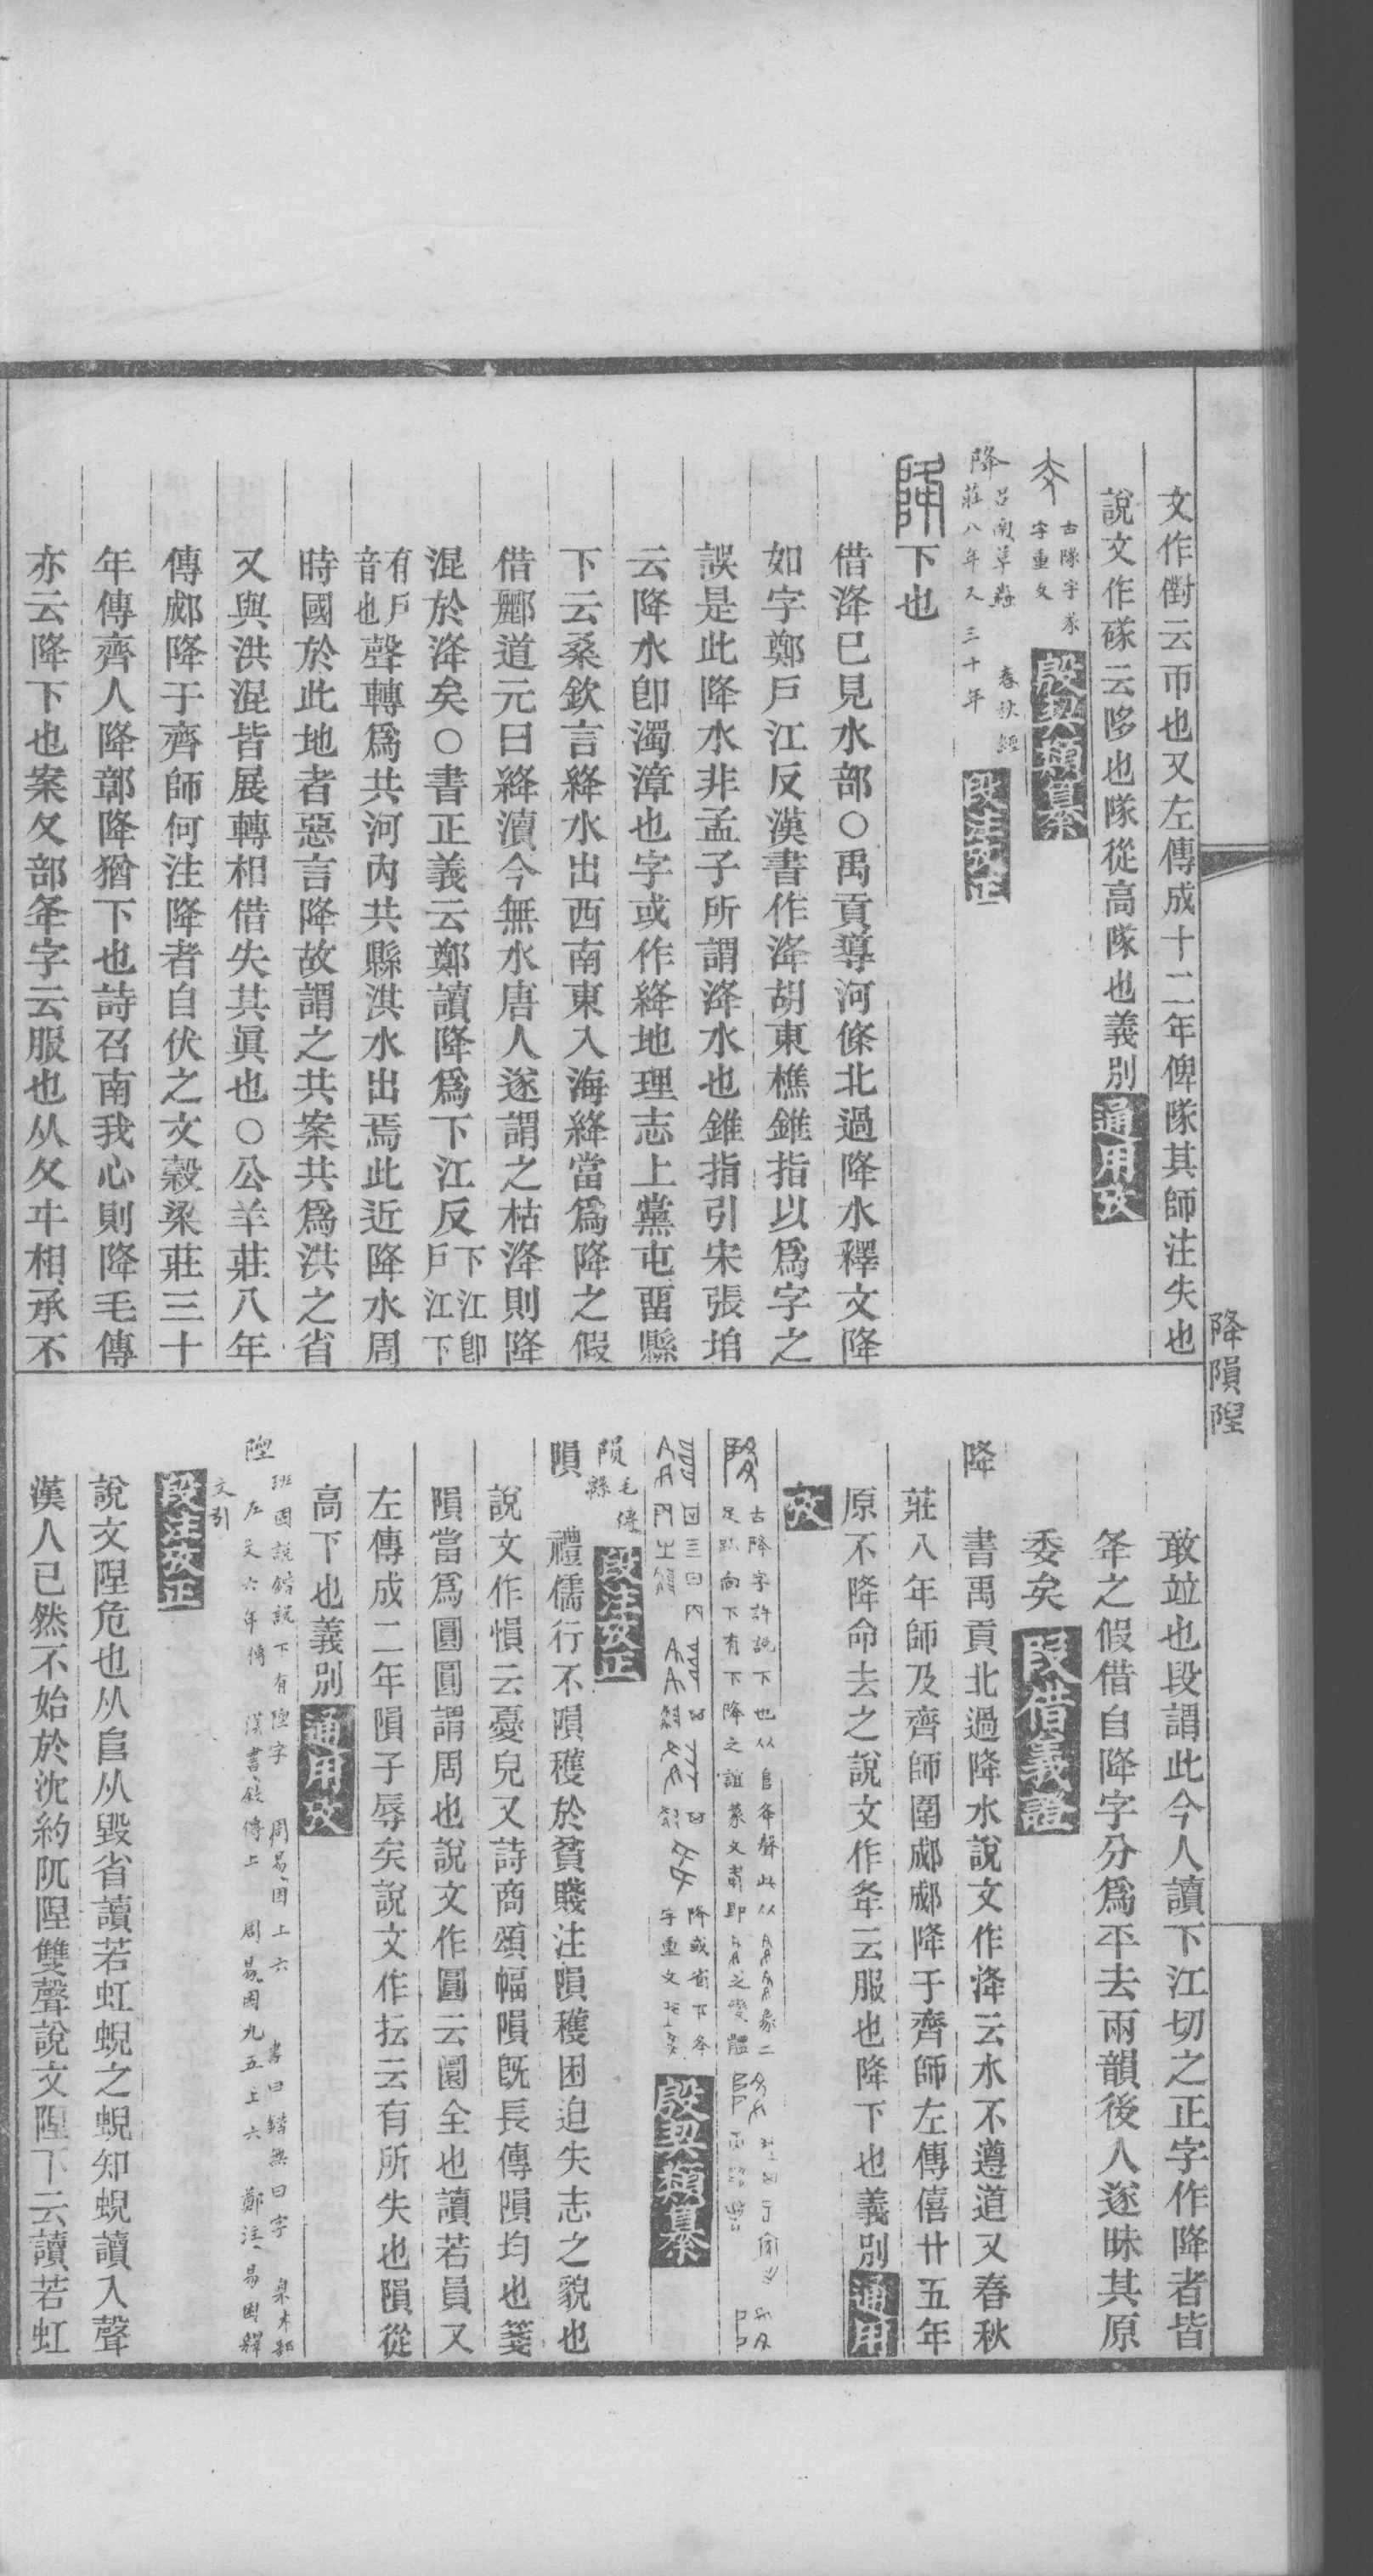 降隕隉
文作㒔云帀也又左傳成十二年俾隊其師注失也
說文作㒸云㐌也隊從高隊也義別通用攷
古隊字彖
字重文
殷契類纂
降
召南草蟲 春秋經
莊八年又三十年
段注攷正
下也
借洚已見水部○禹貢導河條北過降水釋文降
如字鄭戶江反漢書作洚胡東樵錐指以爲字之
誤是此降水非孟子所謂洚水也錐指引宋張垍
云降水卽濁漳也字或作絳地理志上黨屯畱縣
下云桑欽言絳水出西南東入海絳當爲降之假
借酈道元曰絳瀆今無水唐人遂謂之枯洚則降
混於洚矣○書正義云鄭讀降爲下江反下江卽戶江下
有戶音也聲轉爲共河內共縣淇水出焉此近降水周
時國於此地者惡言降故謂之共案共爲洪之省
又與洪混皆展轉相借失其眞也○公羊莊八年
傳郕降于齊師何注降者自伏之文穀梁莊三十
年傳齊人降鄣降猶下也詩召南我心則降毛傳
亦云降下也案夊部夅字云服也从夊㐄相承不
敢並也段謂此今人讀下江切之正字作降者皆
夅之假借自降字分爲平去兩韻後人遂昧其原
委矣段借義證
降 書禹貢北過降水說文作洚云水不遵道又春秋
莊八年師及齊師圍郕郕降于齊師左傳僖廿五年
原不降命去之說文作夅云服也降下也義別通用
攷
古降字許說下也从𨸏夅聲此从
足趾向下有下降之誼篆文
之變體
降或省下夅
字重文
殷契類纂
隕
毛傳
縣
段注攷正
隕 禮儒行不隕穫於貧賤注隕穫困迫失志之貌也
說文作愪云憂皃又詩商頌幅隕旣長傳隕均也箋
隕當爲圓圓謂周也說文作圓云圜全也讀若員又
左傳成二年隕子辱矣說文作抎云有所失也隕從
高下也義別通用攷
隉
班固說鍇說下有隉字 周易困上六 書曰鍇無曰字 臬木部
左文六年傳 漢書敍傳上 周易困九五上六 鄭注易困釋
文引
段注攷正
說文隉危也从𨸏从毀省讀若虹蜺之蜺知蜺讀入聲
漢人已然不始於沈約阢隉雙聲說文隉下云讀若虹